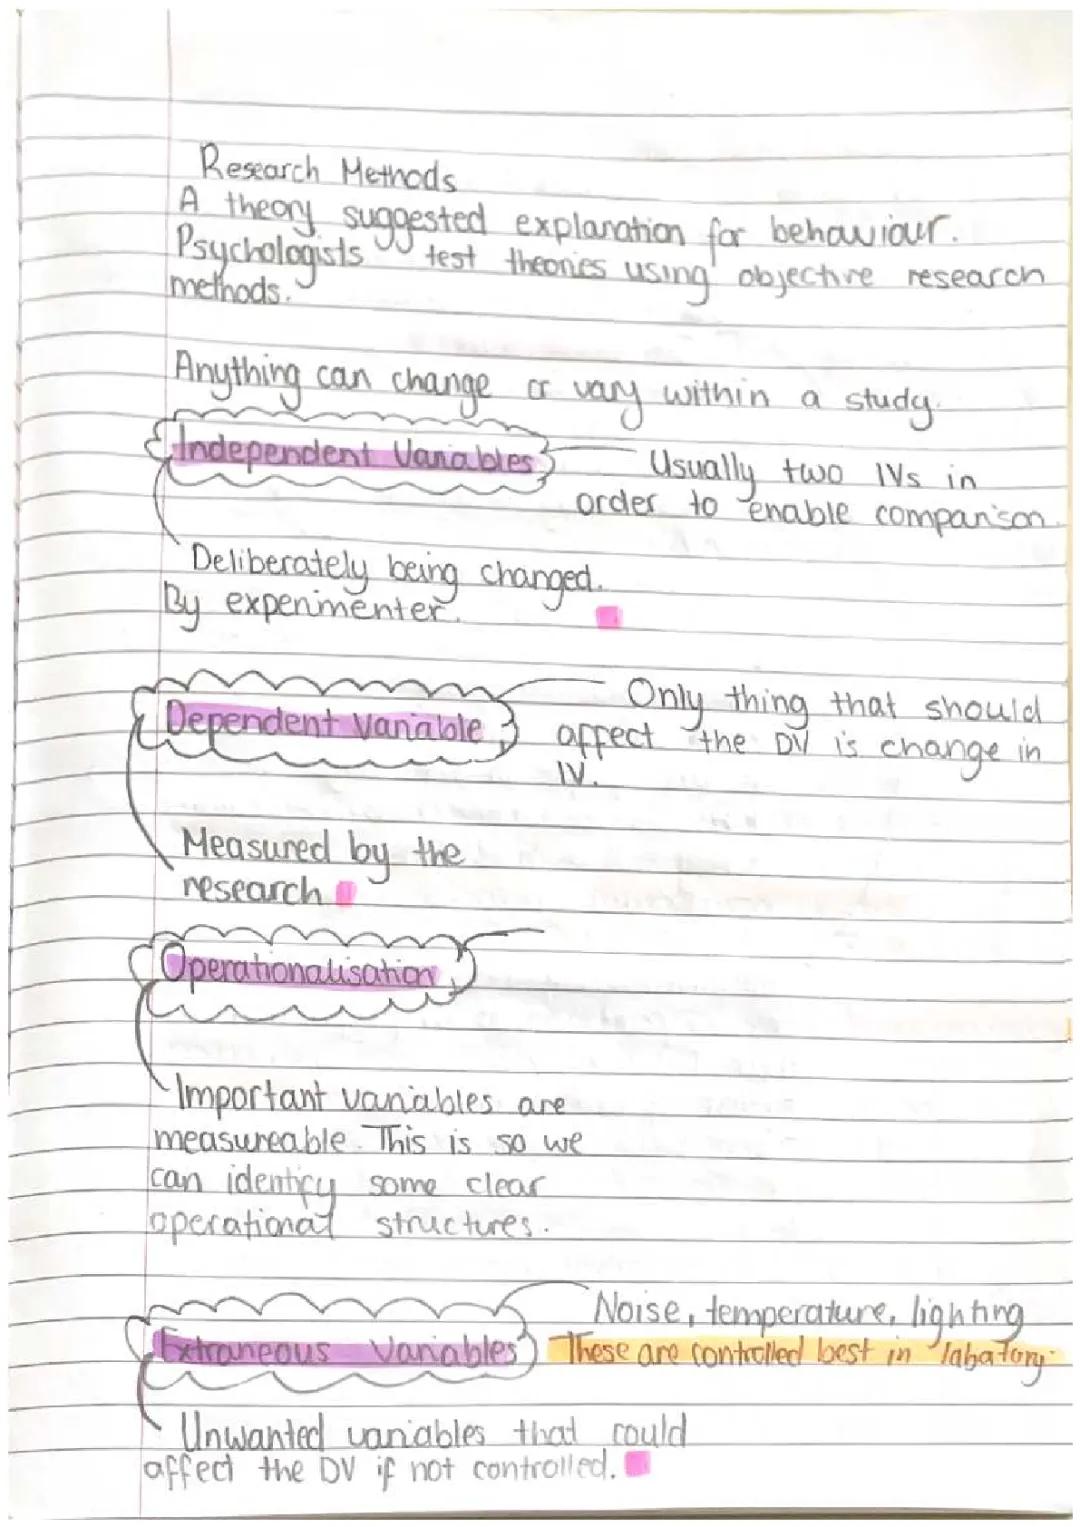 Research Methods
A theory suggested explanation for behaviour.
Psychologists test theories using objective research
methods.
Anything can change or vary within a study.
Independent Variables
Usually two IVs in
order to enable comparison.
Deliberately being changed.
By experimenter.
Dependent Variable
Only thing that should
affect the DV is change in
IV.
Measured by the
research
Operationalisation
Important variables are
measureable. This is so we
can identify some clear
operational structures.
Extraneous Variables
Noise, temperature, lighting
These are controlled best in labatory.
Unwanted variables that could
affect the DV if not controlled.